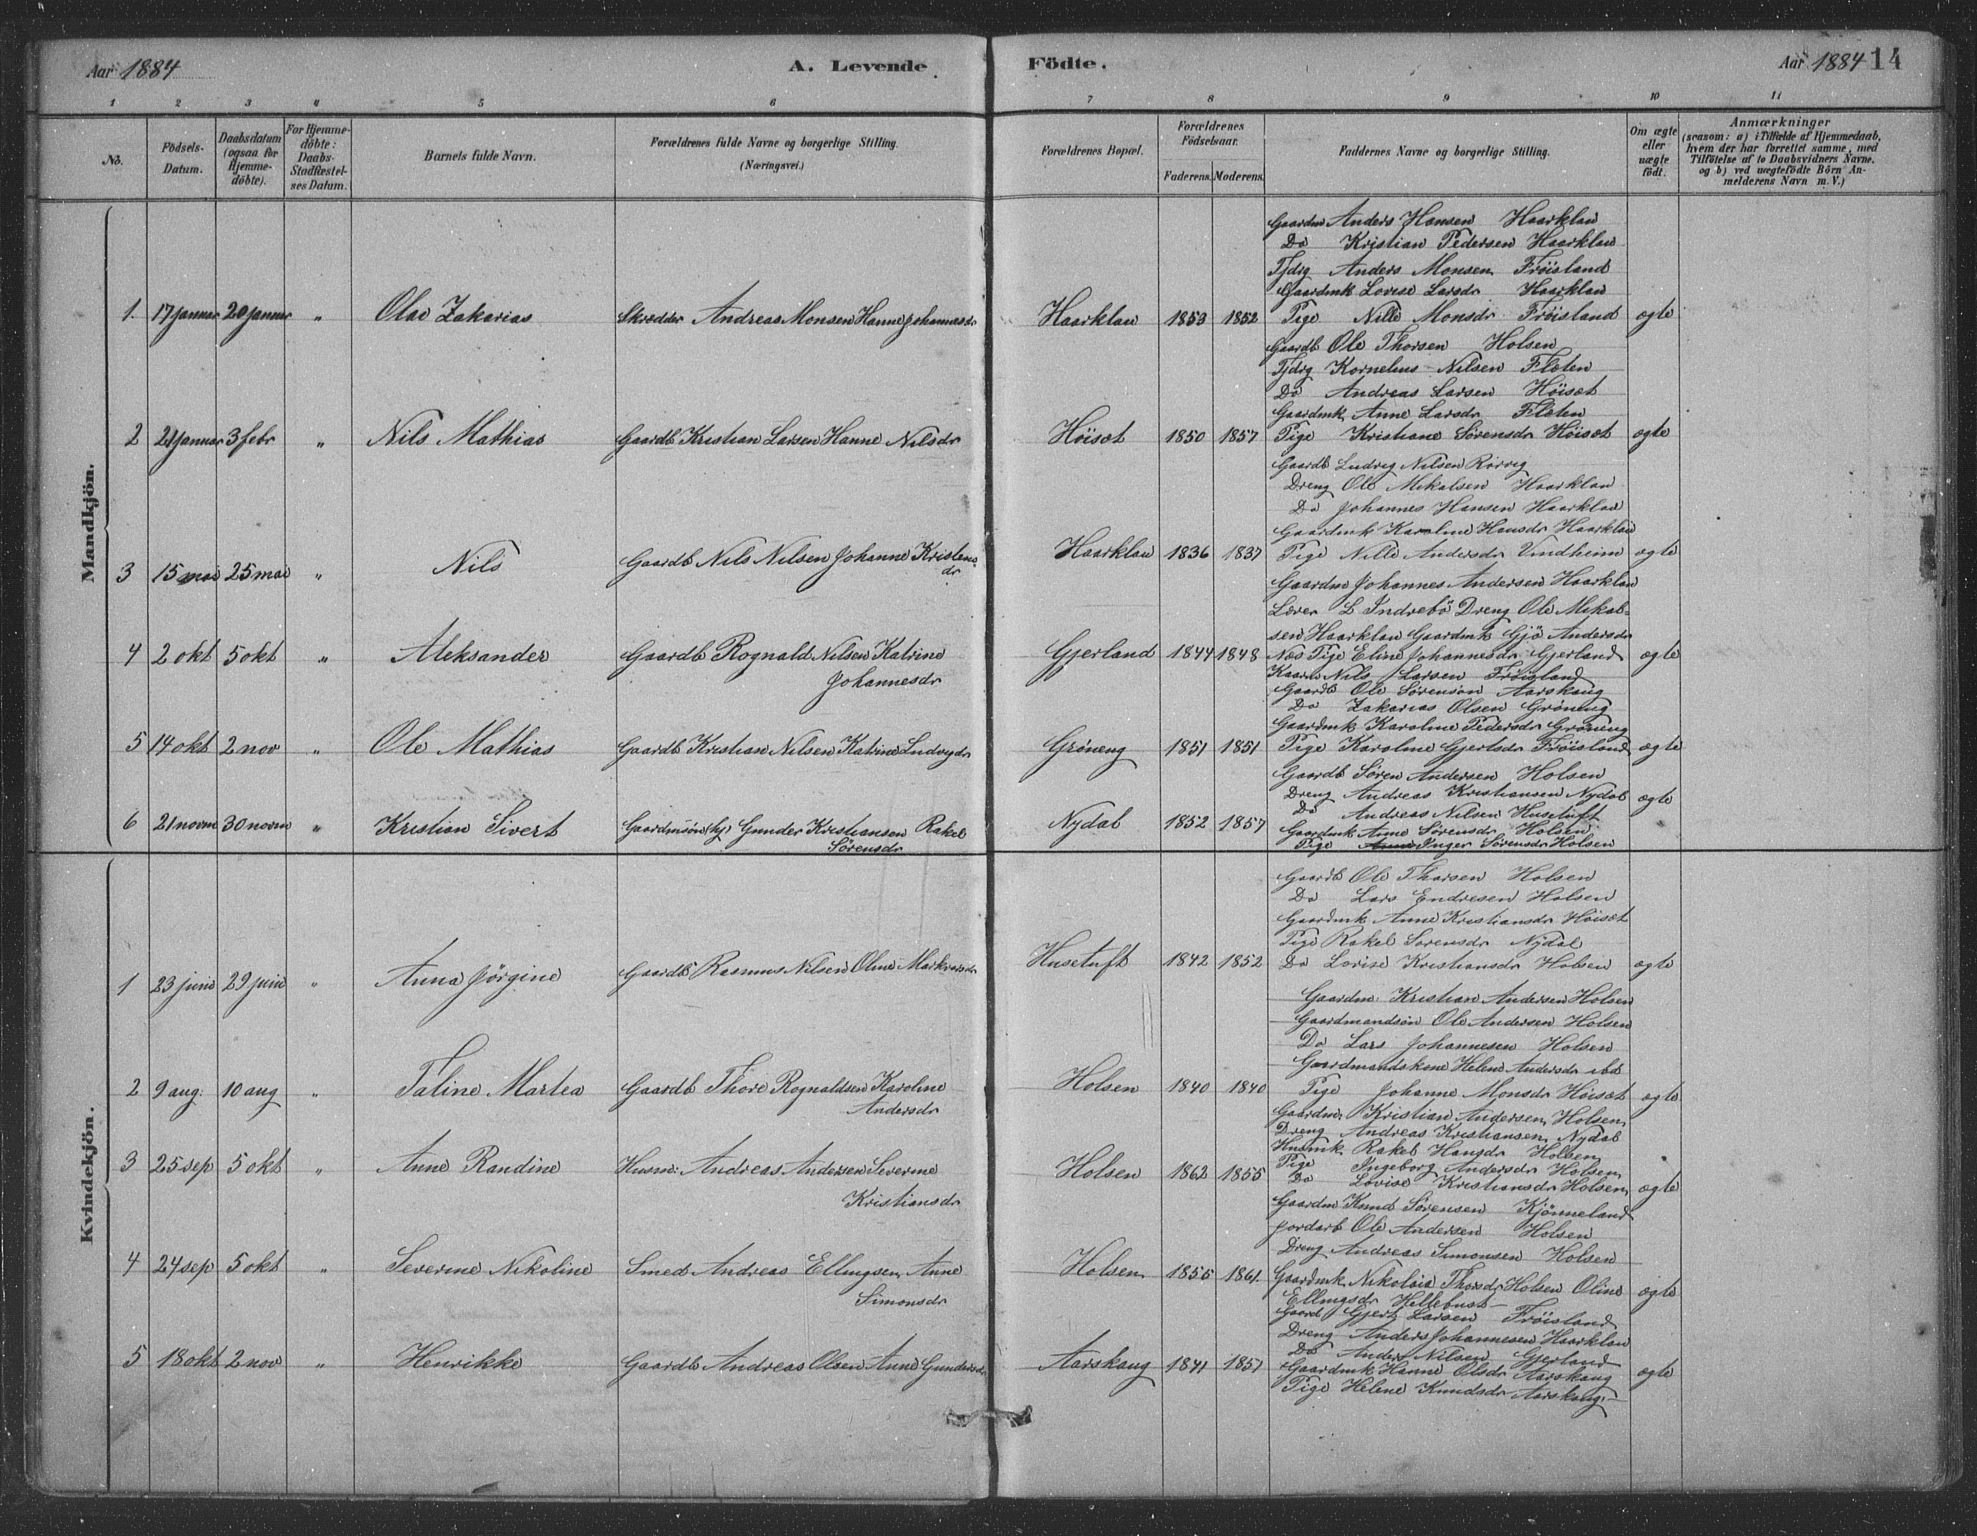 Aar 1884
A. Levende
Födte.
Aar 1884
14
1 2 3 4 5 6 7 8 9 10 11
No.
Födsels-
Datum.
Daabsdatum
(ogsaa for
Hjemme-
döbte).
For Hjemme-
döbte:
Daabs-
Stadfæstel-
ses Datum.
Barnets fulde Navn.
Forældrenes fulde Navne og borgerlige Stilling.
(Næringsvei.)
Forældrenes Bopæl.
Forældrenes
Födselsaar.
Faderens. Moderens.
Faddernes Navne og borgerlige Stilling.
Om ægte
eller
uægte
födt.
Anmærkninger
(saasom: a) i Tilfælde af Hjemmedaab,
hvem der har forrettet samme, med
Tilföielse af to Daabsvidners Navne,
og b) ved uægtefödte Börn An-
melderens Navn m. V.)
Mandkjön.
1. 17 januar 20 januar " Olai Zakarias Skrædder Andreas Monsen Hanne Johannesdr Haarklau 1853 1852 ægte
Gaardm Anders Hansen Haarklau
Do Kristian Pedersen Haarklau
Tjdrg Anders Monsen Fröisland
Gaardmk Lovise Larsdr Haarklau
Pige Nille Monsdr Fröisland
2 21 januar 3 febr " Nils Mathias Gaardb Kristian Larsen Hanne Nilsdr Höiset 1850 1857 ægte
Gaardb Ole Thorsen Holsen
Tjdrg Kornelius Nilsen Fleten
Do Andreas Larsen Höiset
Gaardmk Anne Larsdr Fleten
Pige Kristiane Sörensdr Höiset
3 15 mai 25 mai " Nils Gaardb Nils Nilsen Johanne Kristens-
dr Haarklau 1836 1837 ægte
Gaardb Ludvig Nilsen Rörvig
Dreng Ole Mikalsen Haarklau
Do Johannes Hansen Haarklau
Gaardmk Karoline Hansdr Haarklau
Pige Nille Andersdr Vindheim
4 2 okt 5 okt " Aleksander Gaardb Rognald Nilsen Katrine
Johannesdr Gjerland 1844 1848 ægte
Gaardm Johannes Andersen Haarklau
Lærer L Indrebö Dreng Ole Mikal-
sen Haarklau Gaardmk Gjö Andersdr
Næs Pige Eline Johannesdr Gjerland
5 14 okt 2 nov " Ole Mathias Gaardb Kristian Nilsen Katrine Ludvigdr Gröneng 1851 1851 ægte
Kaarb Nils Larsen Fröisland
Gaardb Ole Sörenson Aarskaug
Do Zakarias Olsen Gröneng
Gaardmk Karoline Pedersdr Gröneng
Pige Karoline Gjertsdr Fröisland
6 21 novm 30 novm " Kristian Sivert Gaardmsön (hj) Gunder Kristiansen Rakel
Sörensdr Nydal 1852 1857 ægte
Gaardb Sören Andersen Holsen
Dreng Andreas Kristiansen Nydal
Do Andreas Nilsen Husetuft
Gaardmk Anne Sörensdr Holsen
Pige Inger Sörensdr Holsen
Kvindekjön.
1 23 juni 29 juni " Anna Jörgine Gaardb Rasmus Nilsen Oline Markusdr Husetuft 1842 1852 ægte
Gaardb Ole Thorsen Holsen
Do Lars Endresen Holsen
Gaardmk Anne Kristiansdr Höiset
Pige Rakel Sorensdr Nydal
Do Lovise Kristiansdr Holsen
2 9 aug. 10 aug " Taline Martea Gaardb Thore Rognaldsen Karoline
Andersdr Holsen 1840 1840 ægte
Gaardm. Kristian Andersen Holsen
Gaardmandsön Ole Andersen Holsen
Do Lars Johannesen Holsen
Gaardmandskone Helene Andersdr ibd
Pige Johanne Monsdr Höiset
3 25 sep 5 okt " Anne Randine Husm: Andreas Andersen Severine
Kristiansdr Holsen 1862 1855 ægte
Gaardm Kristian Andersen Holsen
Dreng Andreas Kristiansen Nydal
Husmk Rakel Hansdr Holsen
Pige Ingeborg Andersdr Holsen
Do Lovise Kristiansdr Holsen
4 24 sep 5 okt " Severine Nikoline Smed Andreas Ellingsen Anne
Simonsdr Holsen 1855 1861. ægte
Gaardm Knud Sörensen Kjönneland
Jordarb Ole Andersen Holsen
Dreng Andreas Simonsen Holsen
Gaardmk Nikolia Thorsdr Holsen Oline
Ellingsdr Hellebust
5 18 okt 2 nov " Henrikke Gaardb Andreas Olsen Anne Gundersdr Aarskaug 1841 1857 ægte
Gaard Gjert Larsen Fröisland
Dreng Anders Johannesen Haarklau
Do Anders Nilsen Gjerland
Gaardmk Hanne Olsdr Aarskaug
Pige Helene Knudsdr Aarskaug